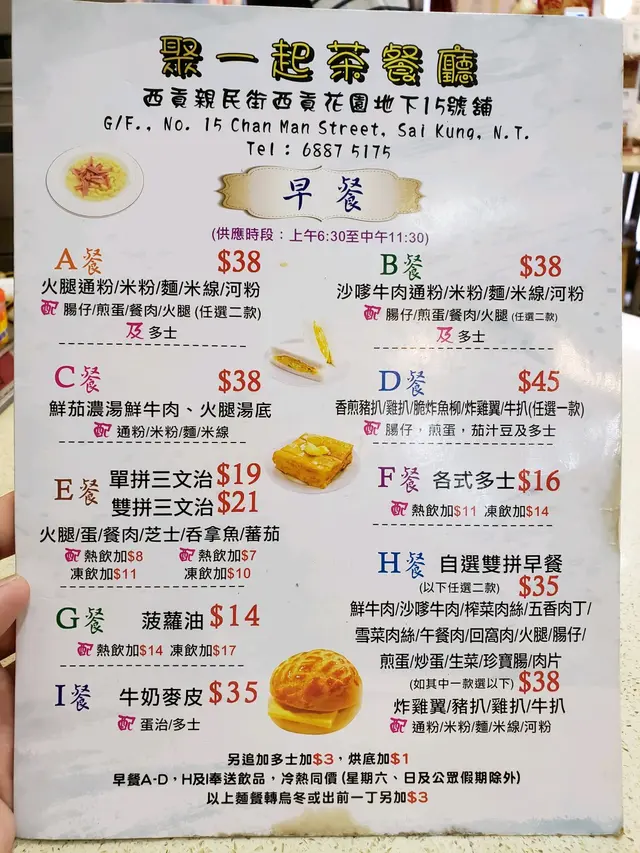 聚一起茶餐廳
西貢親民街西貢花園地下15號舖
G/F., No. 15 Chan Man Street, Sai Kung, N.T.
Tel : 6887 5175
早餐
(供應時段：上午6:30至中午11:30)
A餐 $38
火腿通粉/米粉/麵/米線/河粉
配 腸仔/煎蛋/餐肉/火腿 (任選二款)
及 多士
B餐 $38
沙嗲牛肉通粉/米粉/麵/米線/河粉
配 腸仔/煎蛋/餐肉/火腿 (任選二款)
及 多士
C餐 $38
鮮茄濃湯鮮牛肉、火腿湯底
配 通粉/米粉/麵/米線
D餐 $45
香煎豬扒/雞扒/脆炸魚柳/炸雞翼/牛扒(任選一款)
配 腸仔，煎蛋，茄汁豆及多士
E餐 單拼三文治 $19
雙拼三文治 $21
火腿/蛋/餐肉/芝士/吞拿魚/蕃茄
配 熱飲加$8 配 熱飲加$7
凍飲加$11 凍飲加$10
F餐 各式多士 $16
配 熱飲加$11 凍飲加$14
G餐 菠蘿油 $14
配 熱飲加$14 凍飲加$17
H餐 自選雙拼早餐
(以下任選二款) $35
鮮牛肉/沙嗲牛肉/榨菜肉絲/五香肉丁/
雪菜肉絲/午餐肉/回窩肉/火腿/腸仔/
煎蛋/炒蛋/生菜/珍寶腸/肉片
(如其中一款選以下) $38
炸雞翼/豬扒/雞扒/牛扒
配 通粉/米粉/麵/米線/河粉
I餐 牛奶麥皮 $35
配 蛋治/多士
另追加多士加$3，烘底加$1
早餐A-D，H及I奉送飲品，冷熱同價 (星期六、日及公眾假期除外)
以上麵餐轉烏冬或出前一丁另加$3